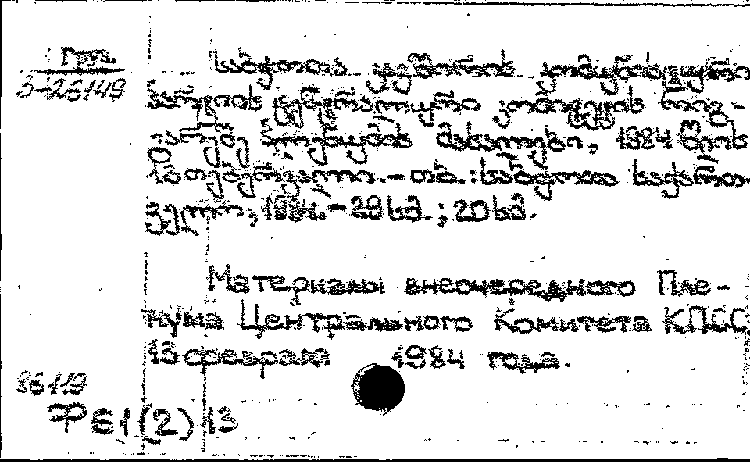 Груз.
3-26149
საბჭოთა კავშირის კომუნისტური
პარტიის ცენტრალური კომიტეტის რიგ-
გარეშე პლენუმის მასალები, 1984 წლის
13 თებერვალი.-თბ.:საბჭოთა საქართ-
ველო, 1984.-29 სმ.; 20 სმ.
Материалы внеочередного Пле-
нума Центрального Комитета КПСС
13 февраля 1984 года.
86119
Ф61(2)13